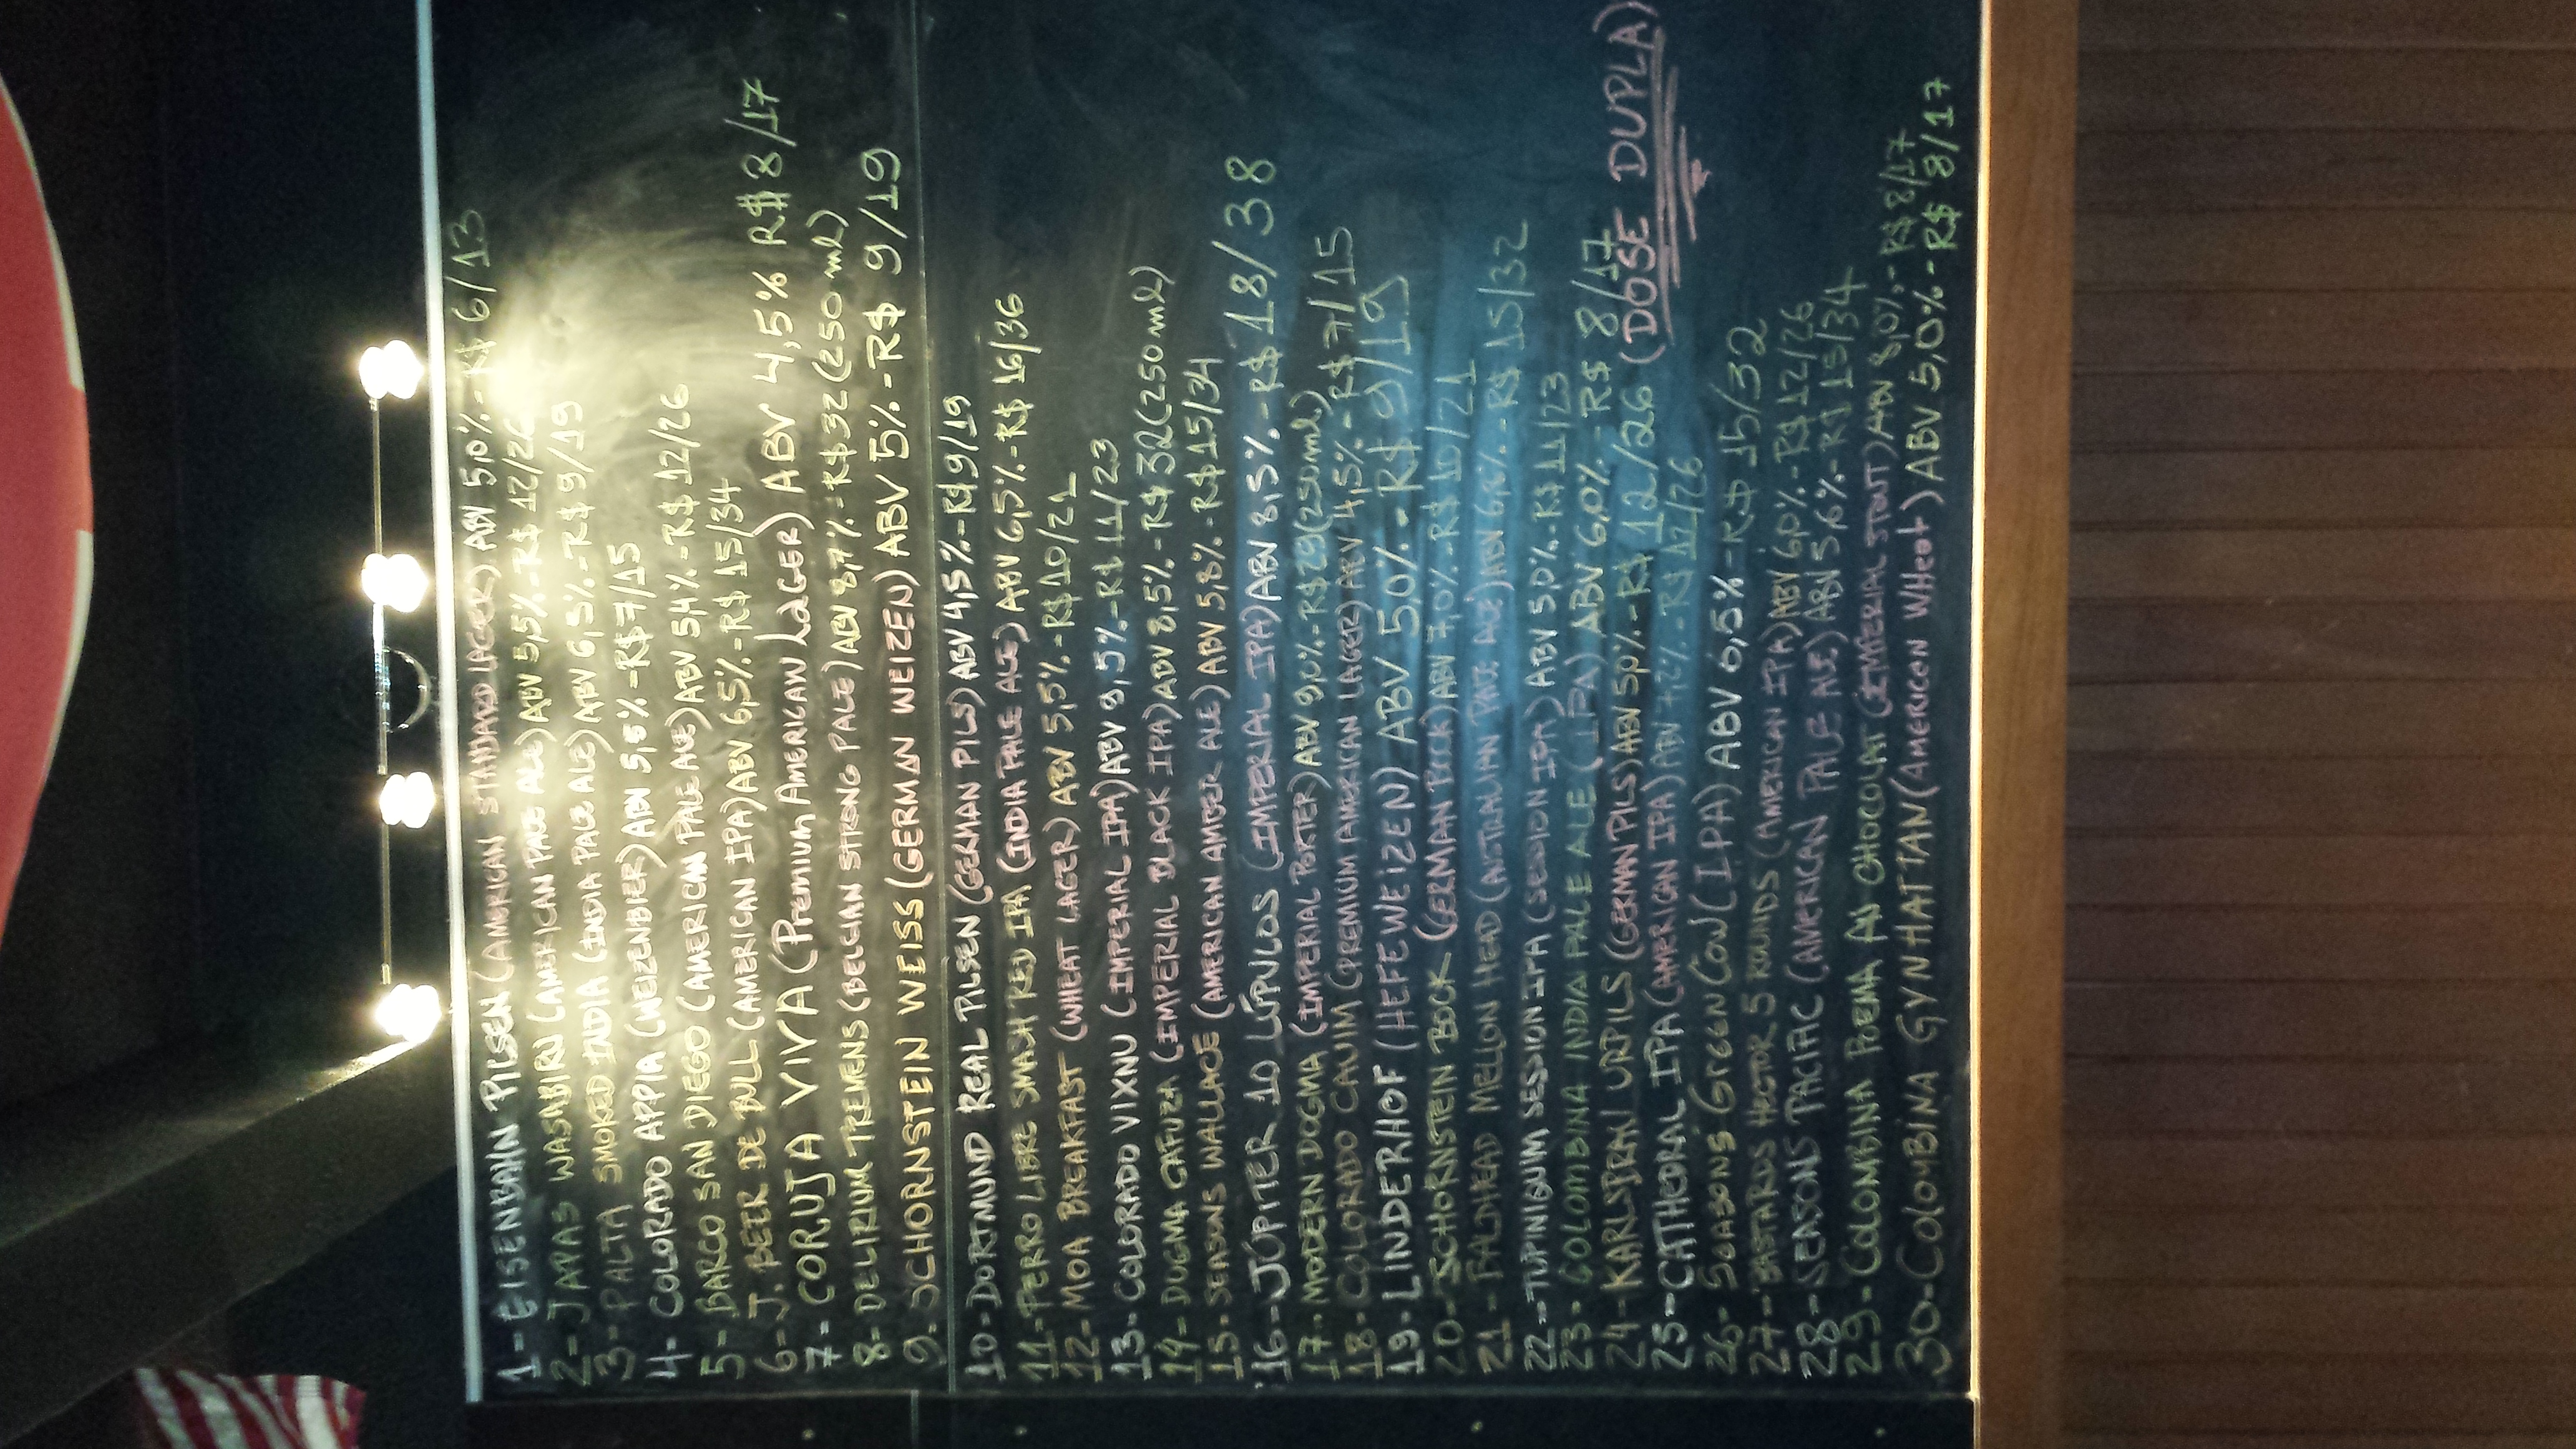 1- EISENBAHN PILSEN (AMERICAN STANDARD LAGER) ABV 5,0% - R$ 6/13
2- JAPAS WASABIRU (AMERICAN PALE ALE) ABV 5,5% - R$ 12/26
3- PALTA SMOKED INDIA (INDIA PALE ALE) ABV 6,5% - R$ 9/19
4- COLORADO APPIA (WEIZENBIER) ABV 5,5% - R$ 7/15
5- BARCO SAN DIEGO (AMERICAN PALE ALE) ABV 5,4% - R$ 12/26
6- J. BEER DE BULL (AMERICAN IPA) ABV 6,5% - R$ 15/34
7- CORUJA VIVA (PREMIUM AMERICAN LAGER) ABV 4,5% R$ 8/17
8- DELIRIUM TREMENS (BELGIAN STRONG PALE) ABV 8,7% - R$ 32 (250 ml)
9- SCHORNSTEIN WEISS (GERMAN WEIZEN) ABV 5% - R$ 9/19
10- DORTMUND REAL PILSEN (GERMAN PILS) ABV 4,5% - R$ 9/19
11- PERRO LIBRE SMASH RED IPA (INDIA PALE ALE) ABV 6,5% - R$ 16/36
12- MOA BREAKFAST (WHEAT LAGER) ABV 5,5% - R$ 10/21
13- COLORADO VIXNU (IMPERIAL IPA) ABV 9,5% - R$ 11/23
14- DOGMA CAFUZA (IMPERIAL BLACK IPA) ABV 8,5% - R$ 32 (250 ml)
15- SEASONS WALLACE (AMERICAN AMBER ALE) ABV 5,8% - R$ 15/34
16- JÚPITER 10 LÚPULOS (IMPERIAL IPA) ABV 8,5% - R$ 18/38
17- MODERN DOGMA (IMPERIAL PORTER) ABV 9,0% - R$ 29 (250 ml)
18- COLORADO CAUIM (PREMIUM AMERICAN LAGER) ABV 4,5% - R$ 7/15
19- LINDERHOF (HEFEWEIZEN) ABV 5,0% - R$ 9/19
20- SCHORNSTEIN BOCK (GERMAN BOCK) ABV 7,0% - R$ 10/21
21- BALDHEAD MELLON HEAD (AUSTRALIAN PALE ALE) ABV - R$ 15/32
22- TUPINIQUIM SESSION IPA (SESSION IPA) ABV 5,0% - R$ 11/23
23- COLOMBINA INDIA PALE ALE (IPA) ABV 6,0% - R$ 8/17
24- KARLSBRAU URPILS (GERMAN PILS) ABV 5,0% - R$ 12/26 (DOSE DUPLA)
25- CATHEDRAL IPA (AMERICAN IPA) ABV 7,2% - R$ 12/26
26- SEASONS GREEN COW (IPA) ABV 6,5% - R$ 15/32
27- BASTARDS HECTOR 5 ROUNDS (AMERICAN IPA) ABV 6,0% - R$ 12/26
28- SEASONS PACIFIC (AMERICAN PALE ALE) ABV 5,6% - R$ 15/34
29- COLOMBINA POEMA AU CHOCOLAT (IMPERIAL STOUT) ABV 8,0% - R$ 8/17
30- COLOMBINA GYNHATTAN (AMERICAN WHEAT) ABV 5,0% - R$ 8/17